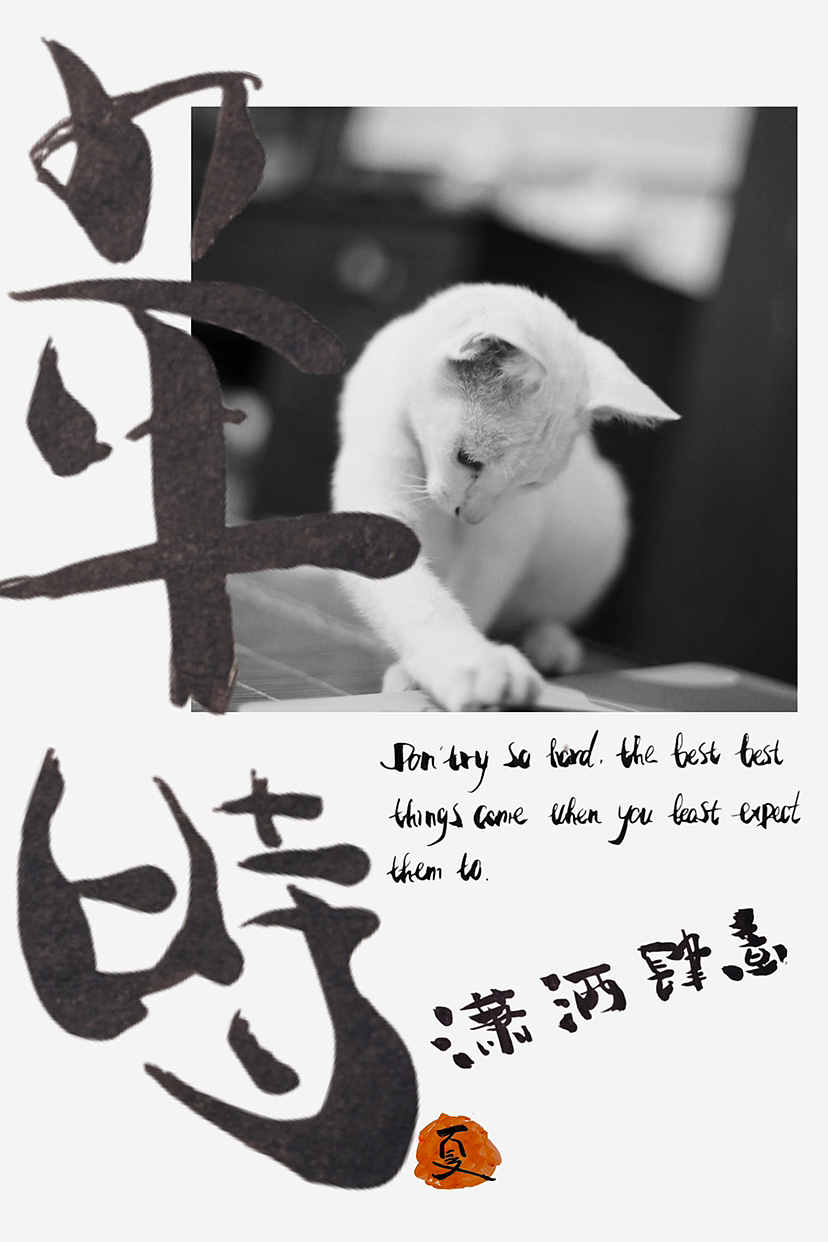 時
Don'try so hard. the best best
things come when you least expect
them to.
潇洒肆意
夏